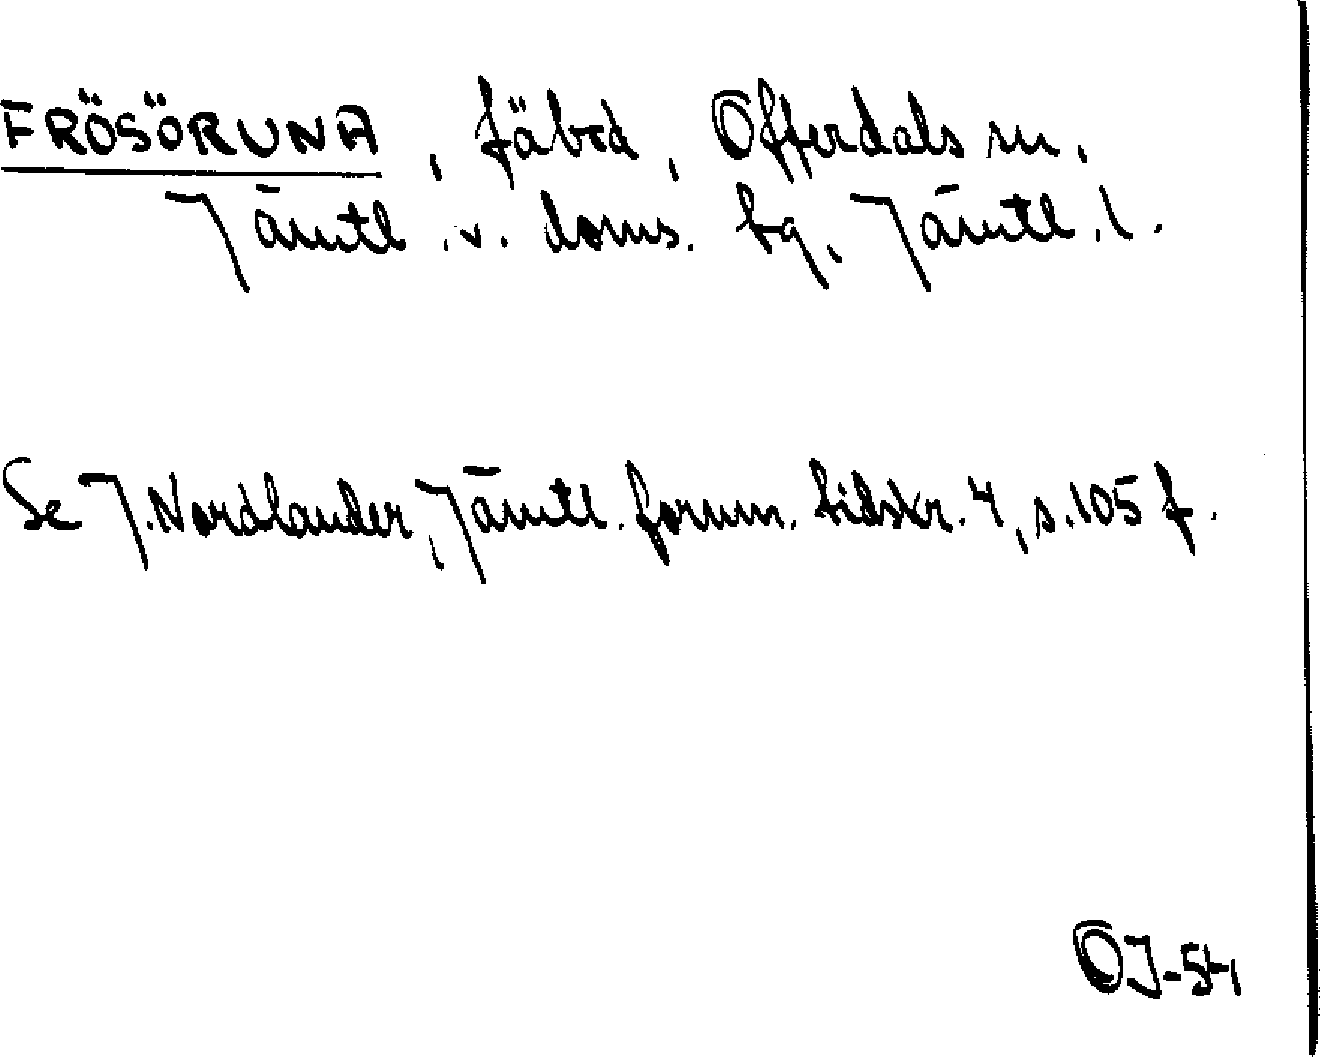 FRÖSÖRUNA, fäbod, Offerdals sn.
Jämtl. v. doms. tg, Jämtl. l.
Se J. Nordlander, Jämtl. fornm. tidskr. 4, s. 105 f.
OJ-54